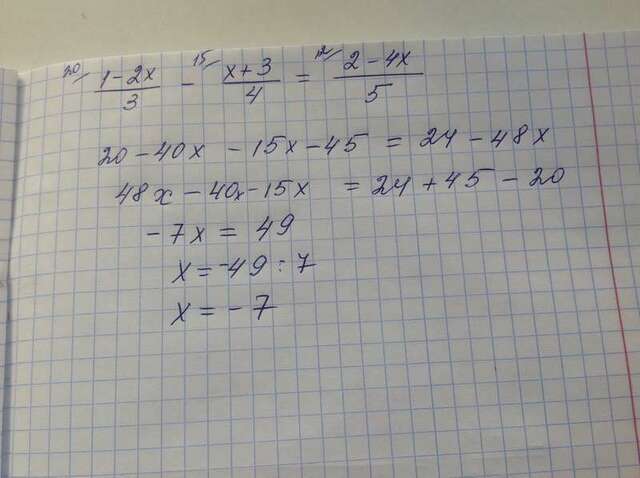 20/ (1-2x)/3 - 15/ (x+3)/4 = 12/ (2-4x)/5
20-40x -15x-45 = 24-48x
48x-40x-15x = 24+45-20
-7x = 49
x=-49:7
x=-7